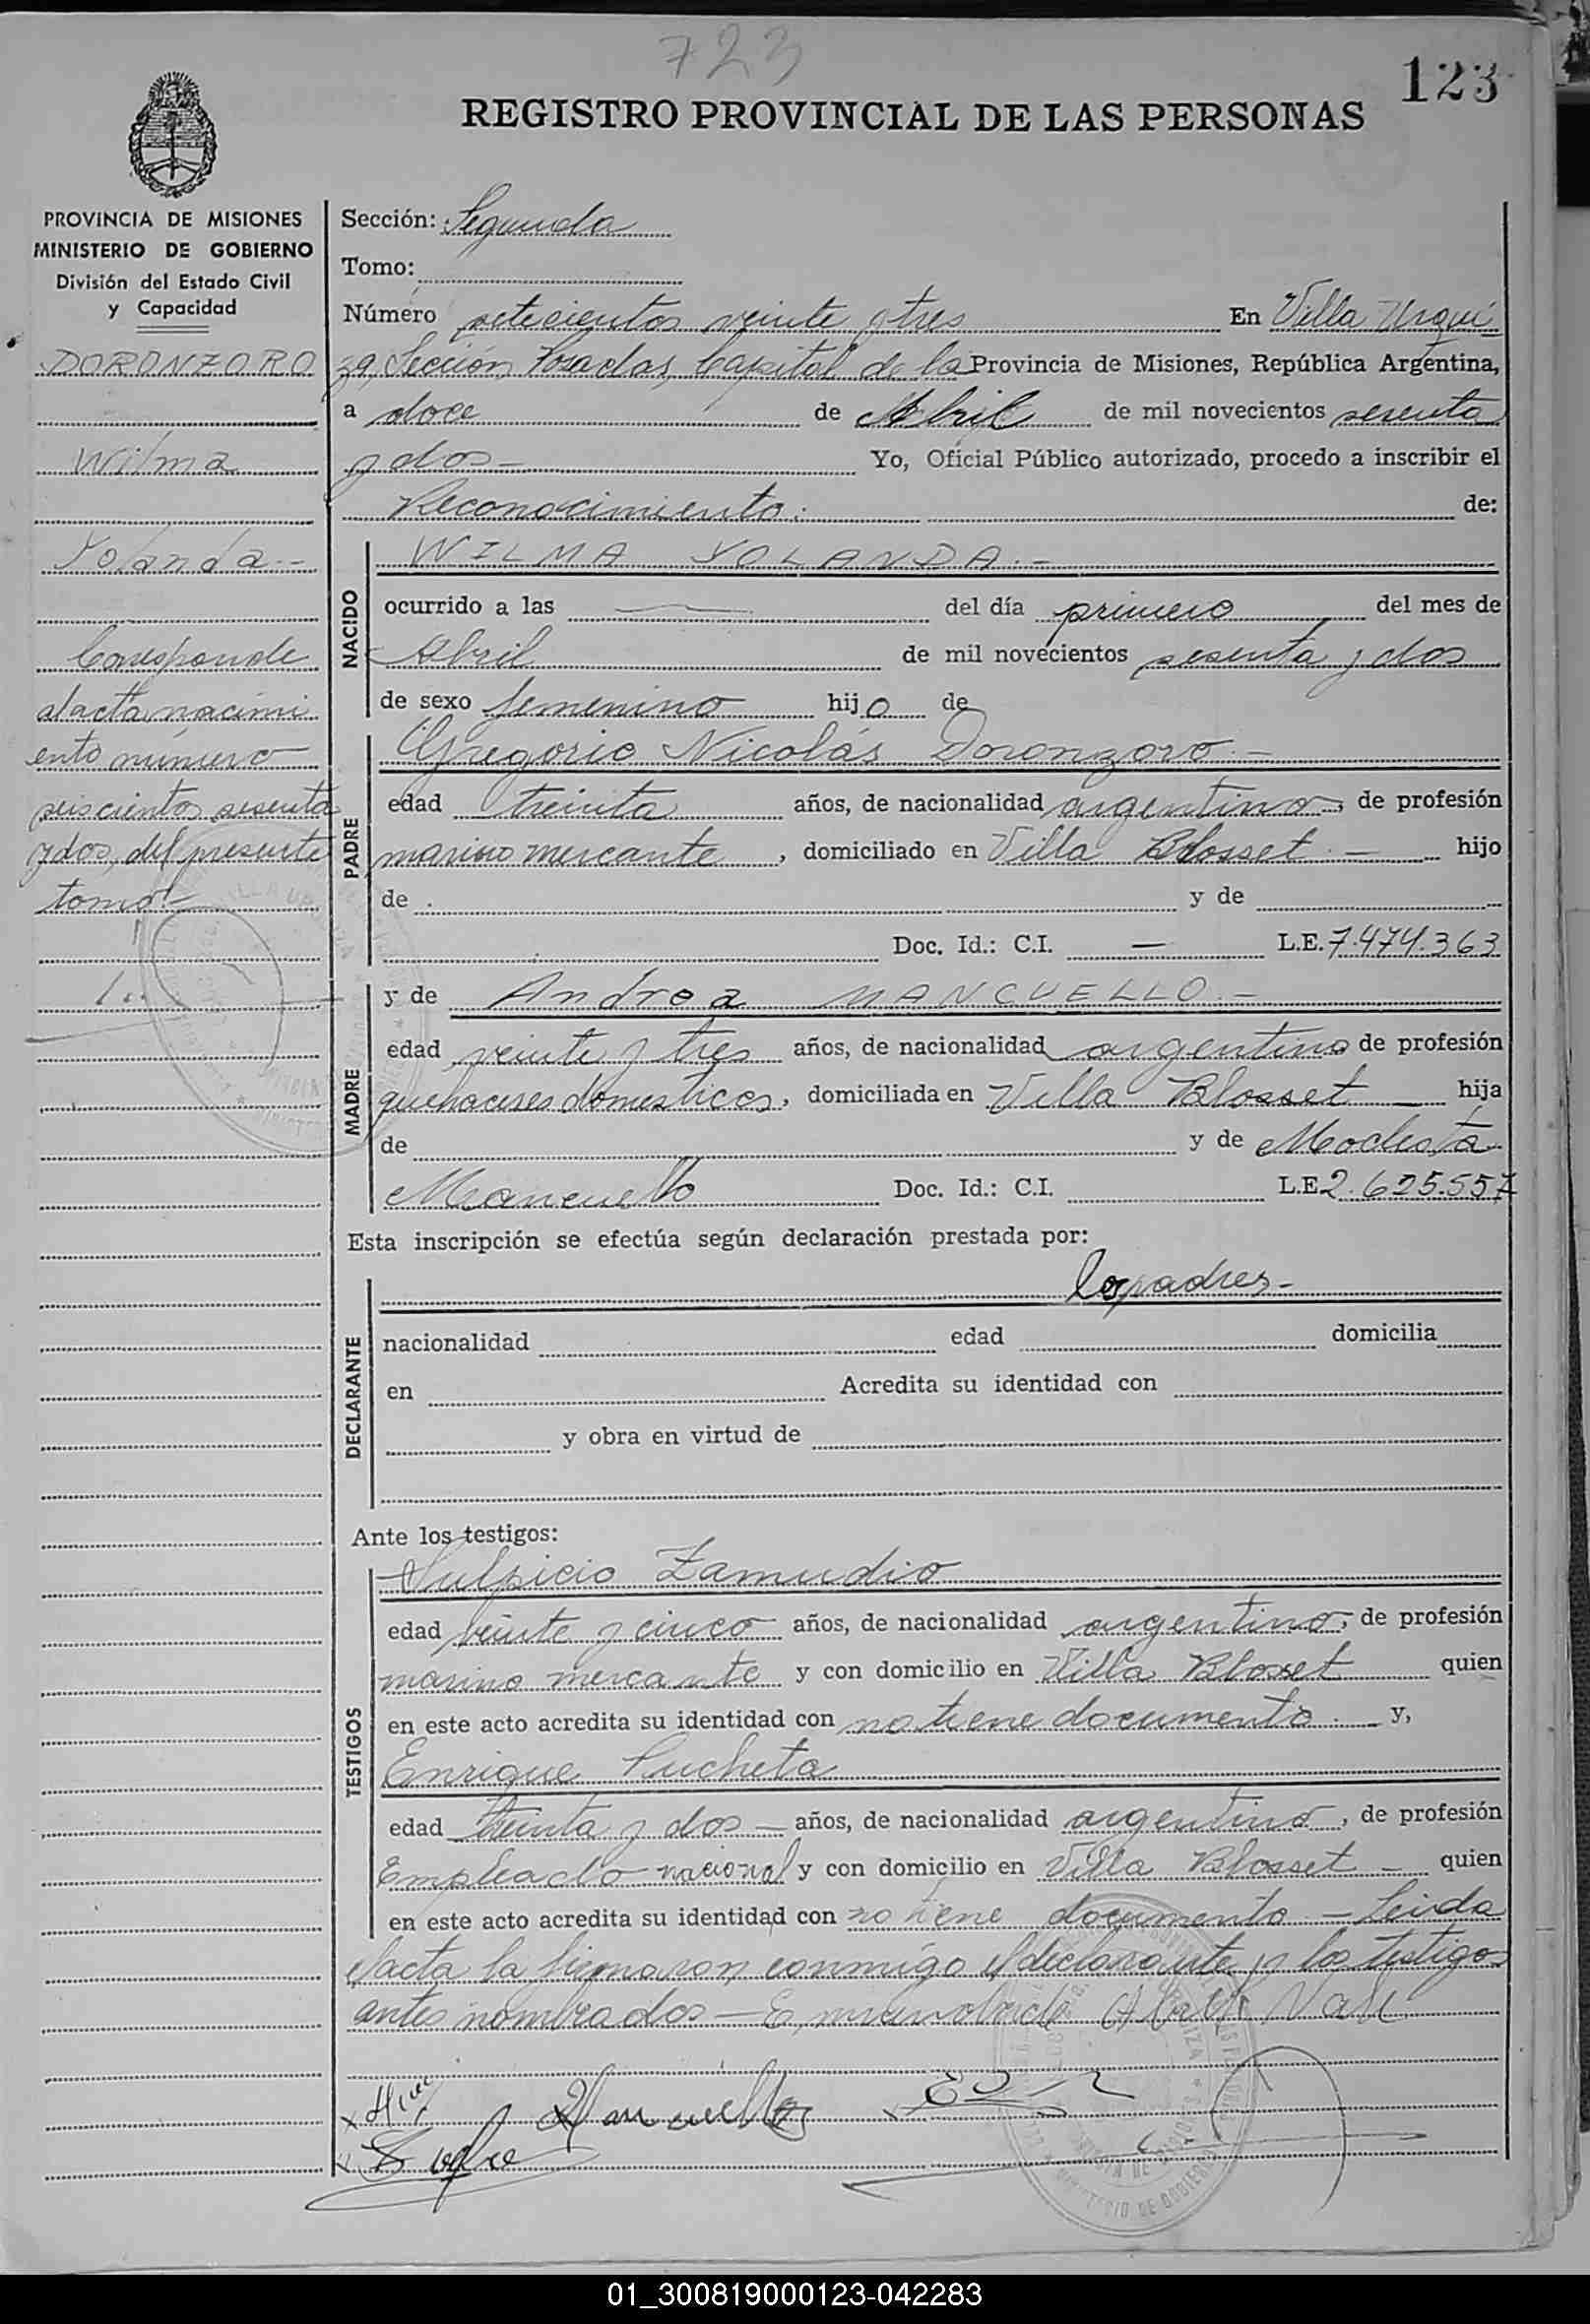 723
123
REGISTRO PROVINCIAL DE LAS PERSONAS
PROVINCIA DE MISIONES
MINISTERIO DE GOBIERNO
División del Estado Civil
y Capacidad
DORONZORO
Wilma
Yolanda.-
Corresponde
al acta nacimi
ento número
seiscientos sesenta
y dos, del presente
tomo.-
Sección: Segunda
Tomo:
Número setecientos veinte y tres En Villa Urqui
za, Sección Posadas, Capital de la Provincia de Misiones, República Argentina,
a doce de Abril de mil novecientos sesenta
y dos - Yo, Oficial Público autorizado, procedo a inscribir el
Reconocimiento. de:
NACIDO
WILMA YOLANDA.-
ocurrido a las — del día primero del mes de
Abril de mil novecientos sesenta y dos
de sexo femenino hijo de
PADRE
Gregorio Nicolás Doronzoro.-
edad treinta años, de nacionalidad argentino, de profesión
marino mercante, domiciliado en Villa Blosset.- hijo
de y de
Doc. Id.: C.I. — L.E. 7.474.363
MADRE
y de Andrea MANCUELLO.-
edad veinte y tres años, de nacionalidad argentina de profesión
quehaceres domesticos, domiciliada en Villa Blosset - hija
de y de Modesta
Mancuello Doc. Id.: C.I. L.E. 2.625.557
Esta inscripción se efectúa según declaración prestada por:
DECLARANTE
los padres-
nacionalidad edad domicilia
en Acredita su identidad con
y obra en virtud de
Ante los testigos:
TESTIGOS
Sulpicio Zamudio
edad veinte y cinco años, de nacionalidad argentino, de profesión
marino mercante y con domicilio en Villa Blosset quien
en este acto acredita su identidad con no tiene documento. y,
Enrique Sucheta
edad treinta y dos - años, de nacionalidad argentino, de profesión
Empleado nacional y con domicilio en Villa Blosset - quien
en este acto acredita su identidad con no tiene documento - Leida
el acta la firmaron conmigo el declarante y los testigos
antes nombrados - Enmendado Abril Vale
Mancuello
01_300819000123-042283